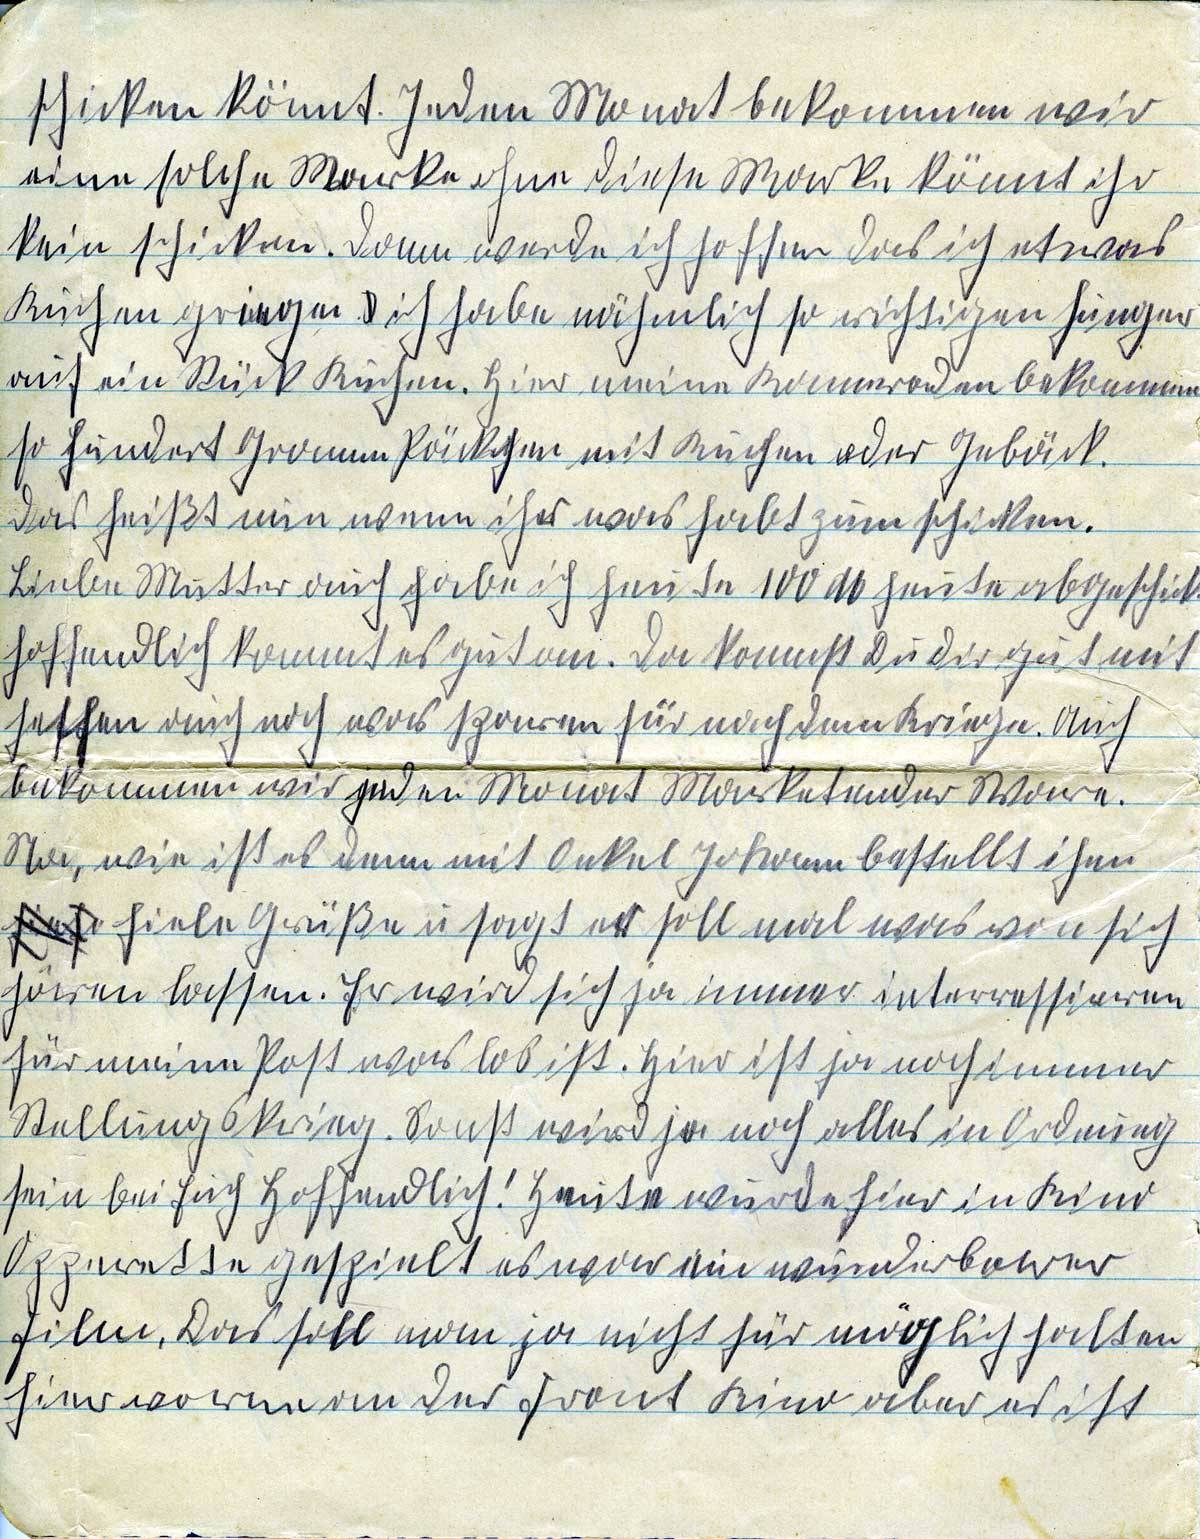 schicken könnt. Jeden Monat bekommen wir
eine solche Marke ohne diese Marke könnt ihr
kein schicken. Dann werde ich hoffen das ich etwas
Kuchen griegen ich habe nähmlich so richtigen hunger
auf ein Stück Kuchen. Hier meine Kammeraden bekommen
so hundert Gramm Päckchen mit Kuchen oder Gebäck.
Das heißt nun wenn ihr was habt zum schicken.
Liebe Mutter auch habe ich heute 100 M heute abgeschick
hoffendlich kommt es gut an. Da kannst Du dir gut mit
helfen auch noch was sparen für nach dem Kriege. Auch
bekommen wir jeden Monat Marketender Ware.
Na, wie ist es denn mit Onkel Johann bestellt ihen
fiele Grüße u sagt er soll mal was von sich
hören lassen. Er wird sich ja immer interressieren
für meine Post was los ist. Hier ist ja noch immer
Stellungskrieg. Sonst wird ja noch alles in Ordnung
sein bei Euch Hoffendlich! Heute wurde hier in Kino
Opperette gespielt es war ein wunderbarer
Film. Das soll man ja nicht für möglich halten
hier vorne an der Front Kino aber es ist